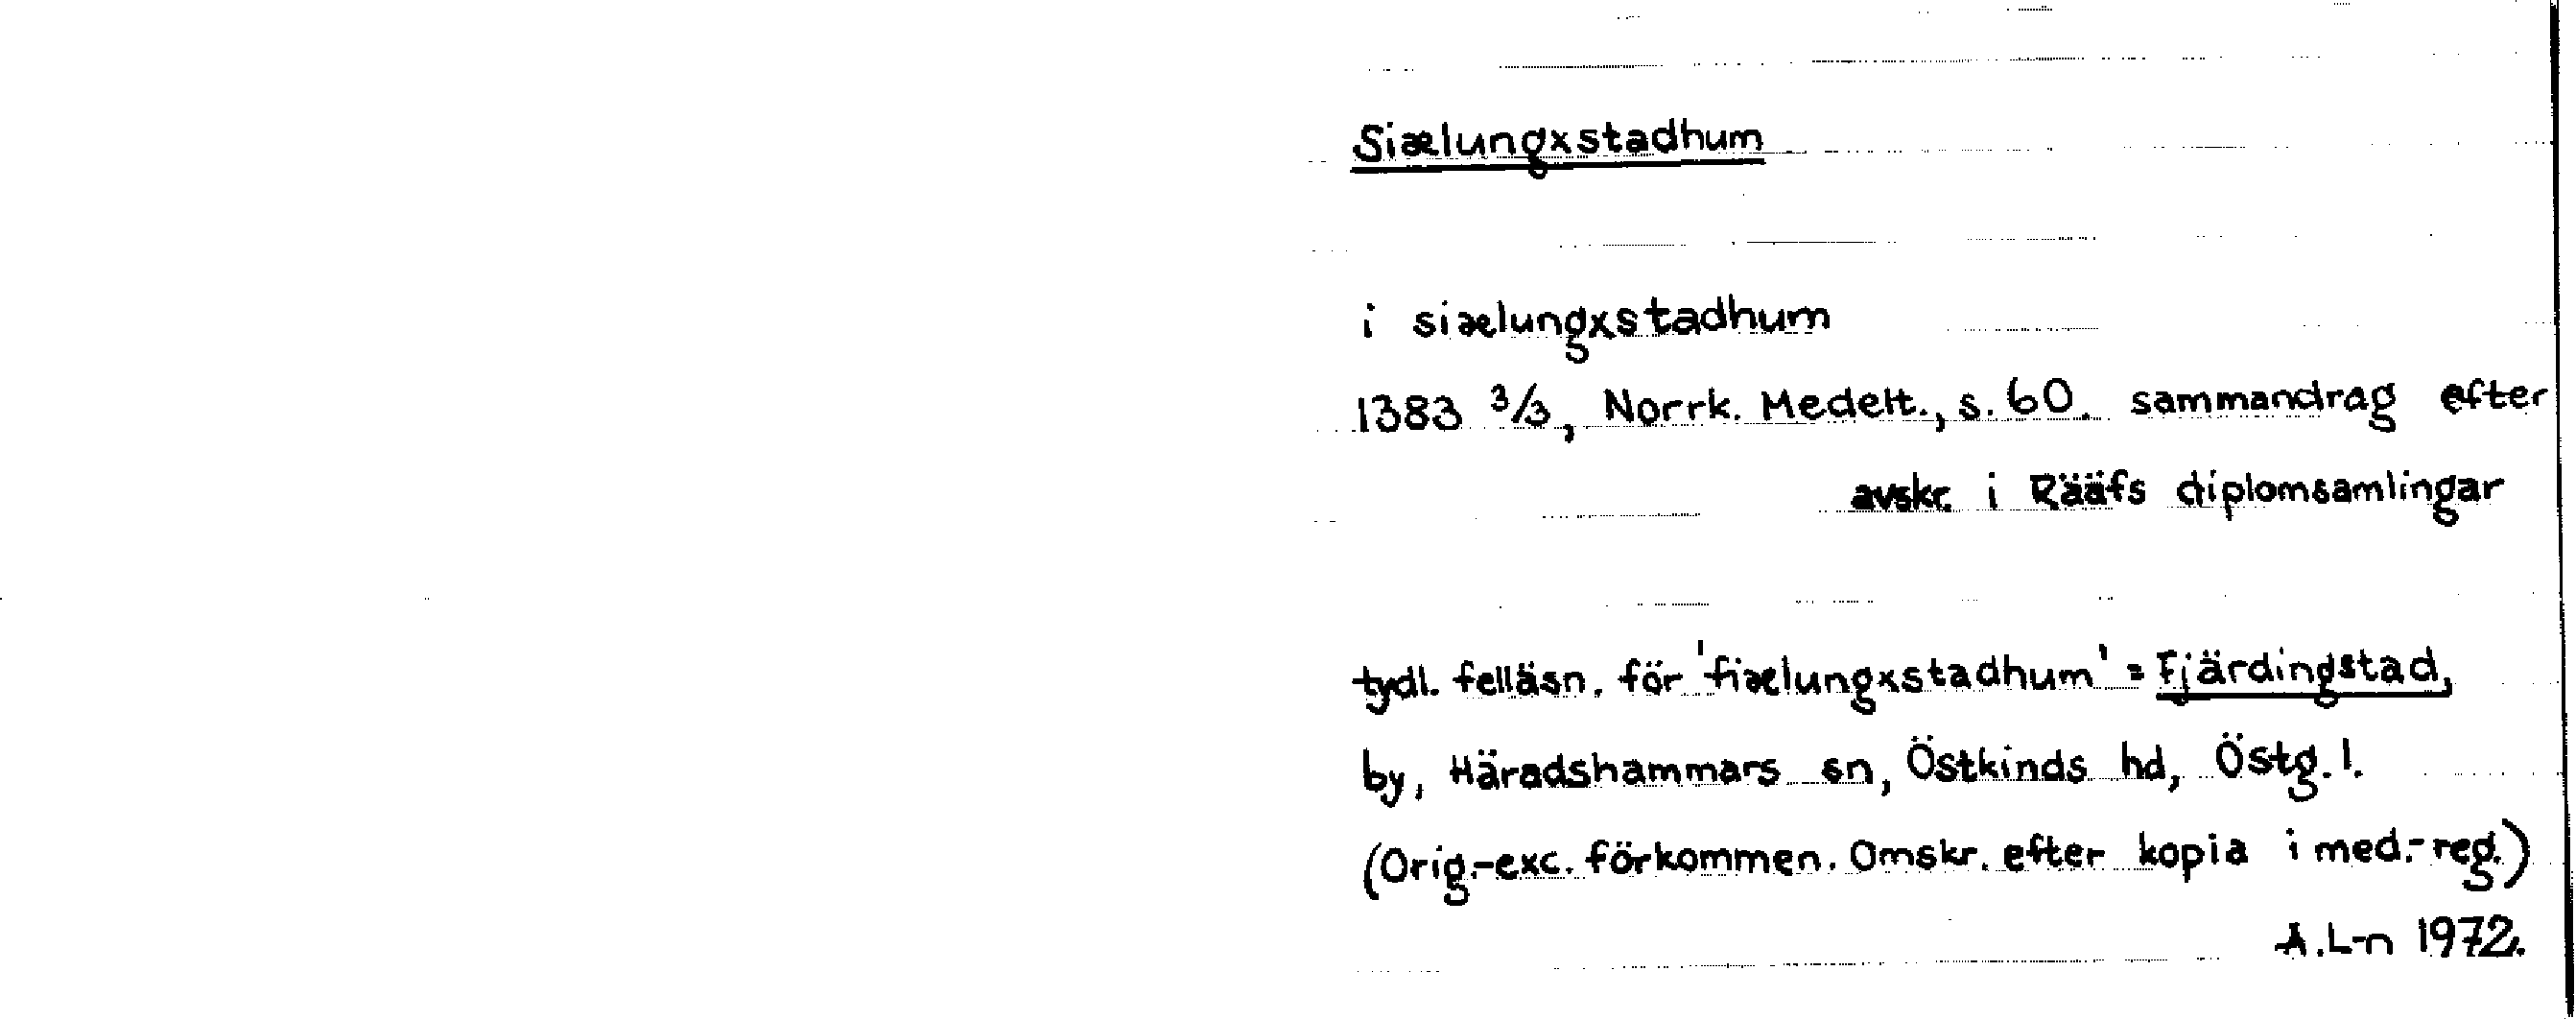 Siælungxstadhum
i siælungxstadhum
1383 3/3, Norrk. Medelt., s. 60. sammandrag efter
avskr. i Rääfs diplomsamlingar
tydl. felläsn. för 'fiælungxstadhum' = Fjärdingstad,
by, Häradshammars sn, Östkinds hd, Östg. l.
(Orig.-exc. förkommen. Omskr. efter kopia i med.-reg.)
A.L-n 1972.